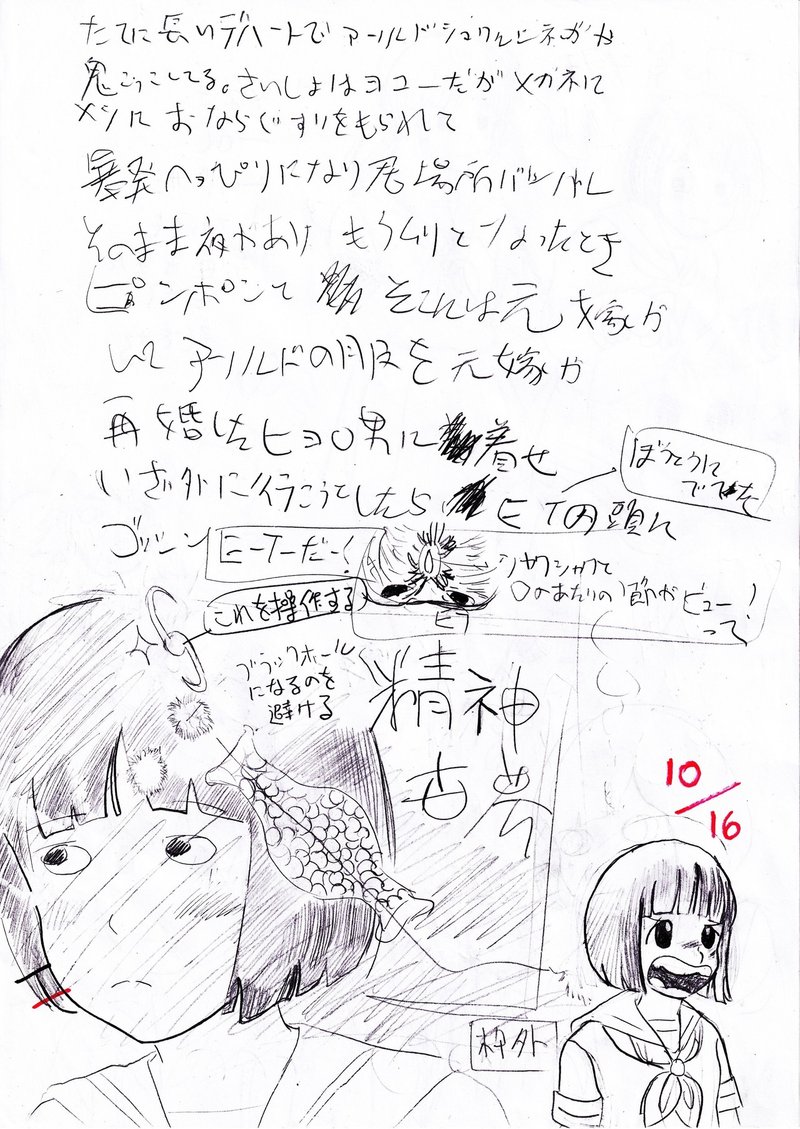 たてに長いデパートでアールドシュワルとネガが
鬼ごっこしてる。さいしょはヨユーだがメガネに
メシに おならぐすりをもられて
暴発へっぴりになり居場所バレバレ
そのまま夜があけ もうムリとなったとき
ピンポンて それは元嫁が
いて アールドの服を元嫁が
再婚したヒョロ男に 着せ
いざ外に行こうとしたら ETの頭に
ぼうとうに
でてた
ゴッゾーン
E-Tーだー!
これを操作する
シャクシャクって
〇のあたりの節がビュー!
って
ブラックホール
になるのを
避ける
精神
10/16
枠外